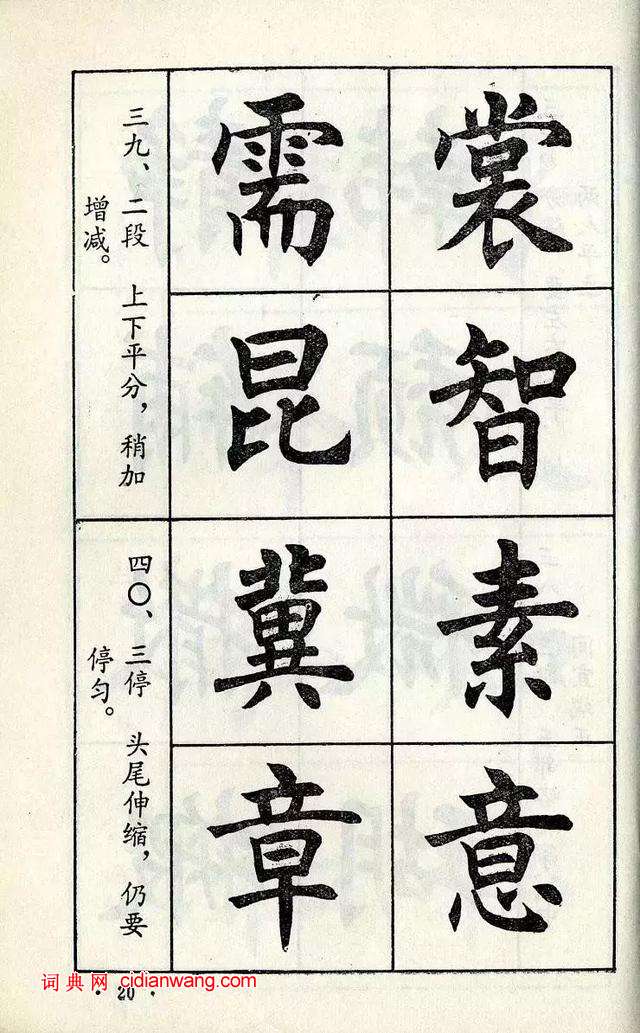 裳智素意
需昆冀章
三九、二段　上下平分，稍加
增减。
四〇、三停　头尾伸缩，仍要
停匀。
词典网 cidianwang.com
· 20 ·